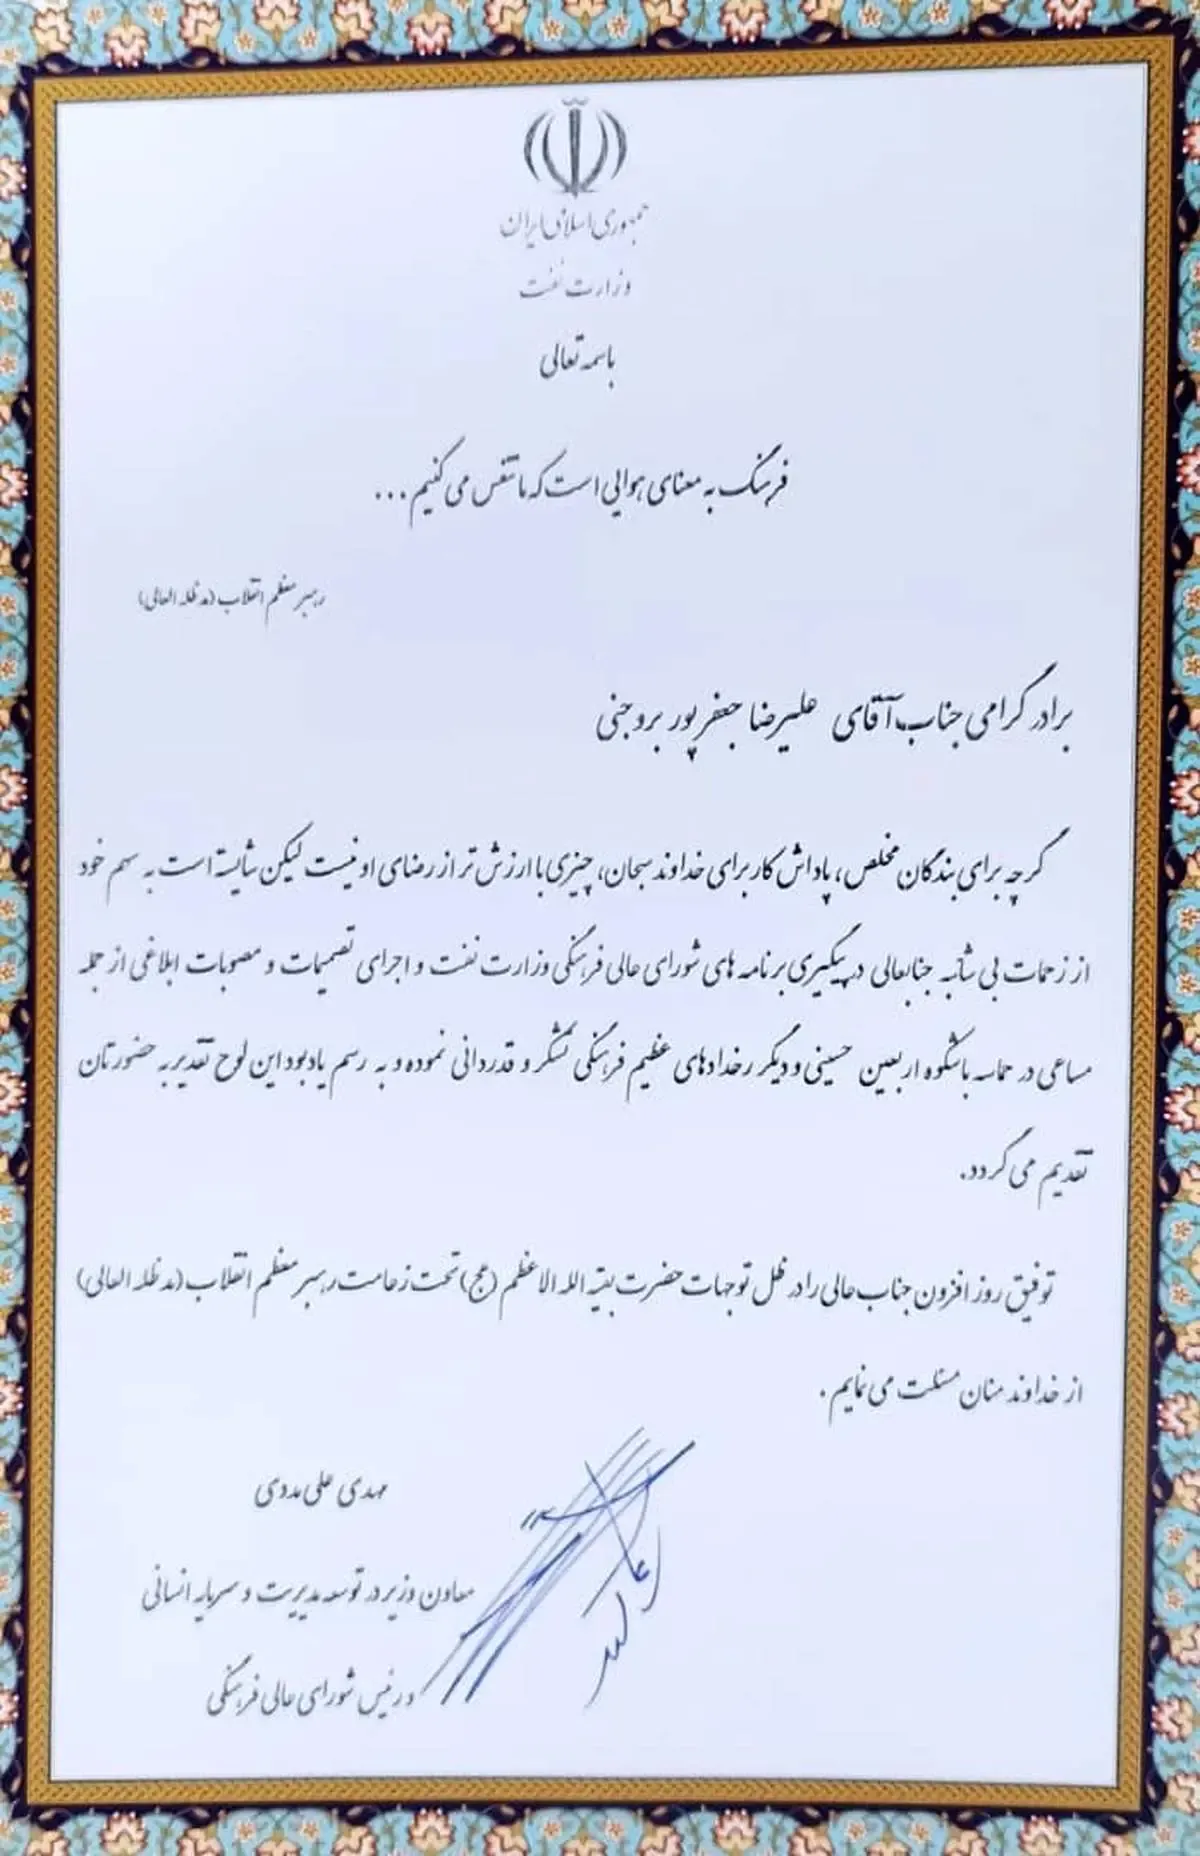 جمهوری اسلامی ایران
وزارت نفت
باسمه تعالی
فرهنگ به معنای هوایی است که ما تنفس می کنیم ...
رهبر معظم انقلاب (مدظله العالی)
برادر گرامی جناب آقای علیرضا جعفرپور بروجنی
گرچه برای بندگان مخلص، پاداش کار برای خداوند سبحان، چیزی با ارزش تر از رضای او نیست لیکن شایسته است به سهم خود
از زحمات بی شائبه جنابعالی در پیگیری برنامه های شورای عالی فرهنگی وزارت نفت و اجرای تصمیمات و مصوبات ابلاغی از جمله
مساعی در حماسه باشکوه اربعین حسینی و دیگر رخدادهای عظیم فرهنگی تشکر و قدردانی نموده و به رسم یادبود این لوح تقدیر به حضورتان
تقدیم می گردد.
توفیق روز افزون جناب عالی را در ظل توجهات حضرت بقیه الله الاعظم (عج) تحت زعامت رهبر معظم انقلاب (مدظله العالی)
از خداوند منان مسئلت می نمایم .
مهدی علی مددی
معاون وزیر در توسعه مدیریت و سرمایه انسانی
و رئیس شورای عالی فرهنگی